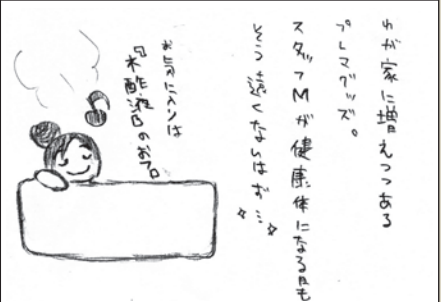 わが家に増えつつある
プレマグッズ。
スタッフMが健康体になる日も
そう遠くないはず…
お気に入りは
『木酢液』のおフロ